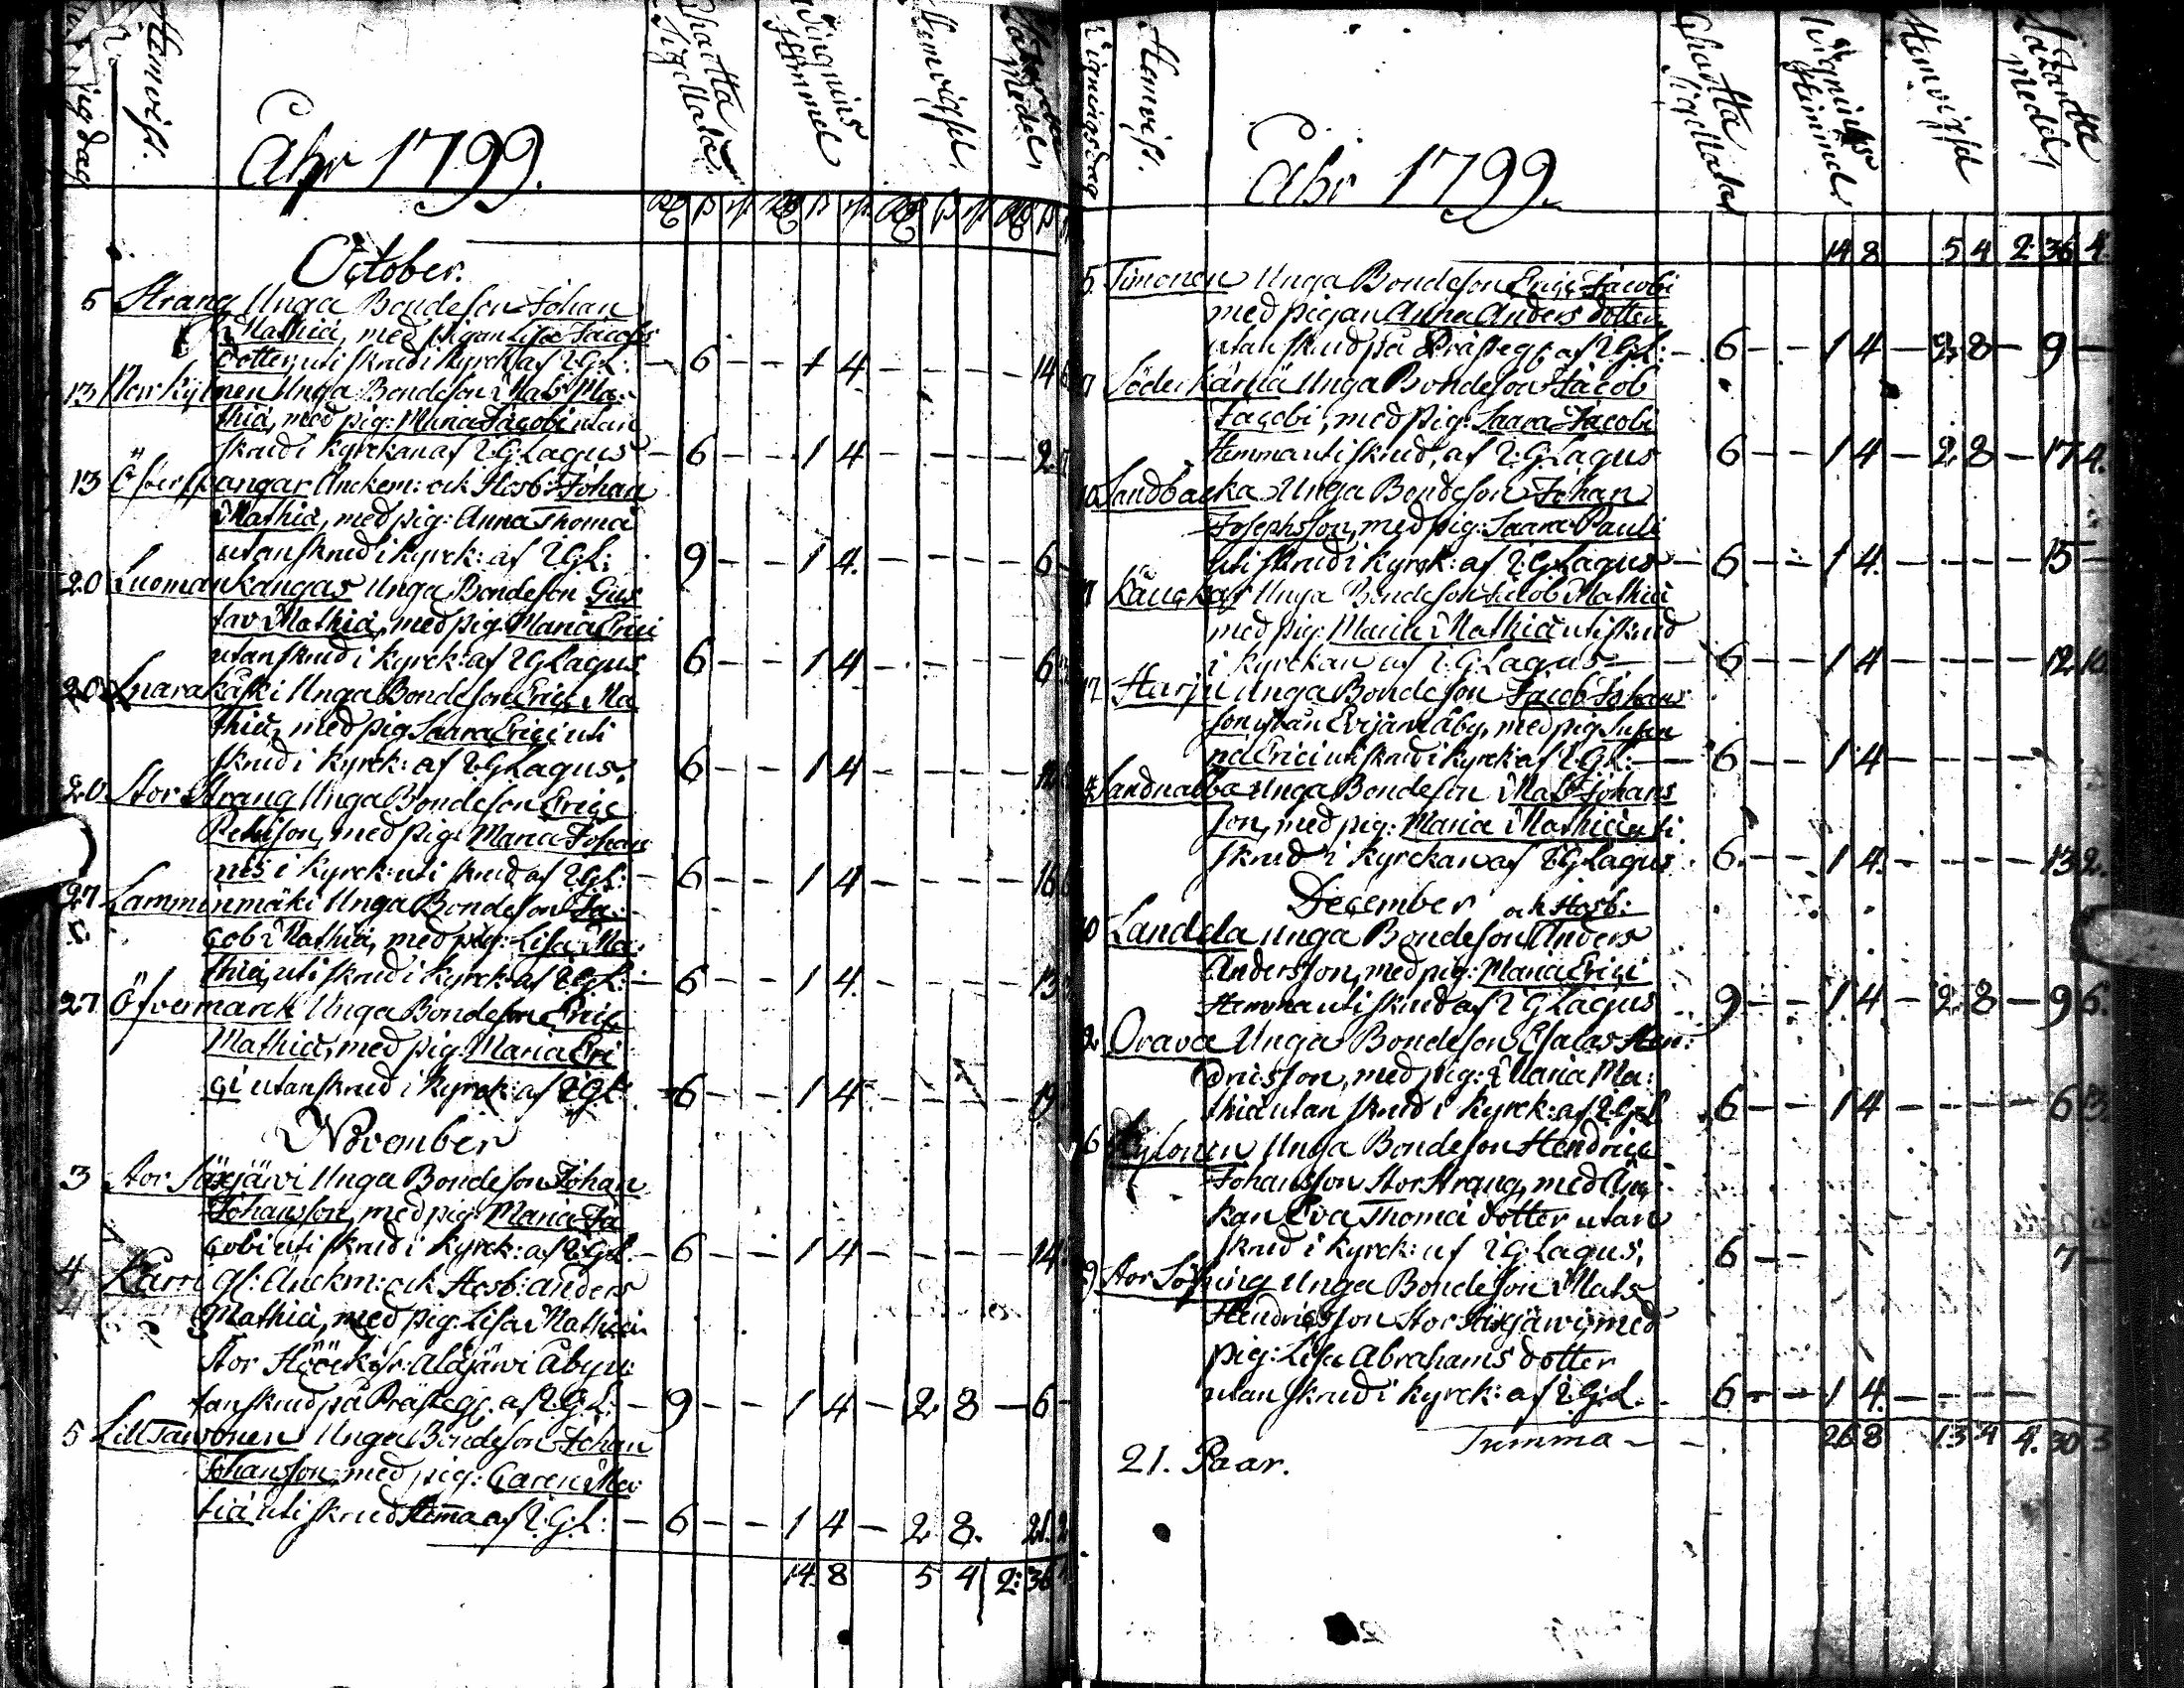 Hemvist.
Chartta Sigillata
Vignings Stämmel
Hemvigsel
Åhr 1799.
October.
5 Strang Unga Bondeson Johan
Mathiæ, med pigan Lisa Jacobs
dotter uti skrud i Kyrck: af I:G:L: — 6 — — 1 4 — — — — 14
13 Unga Bondeson Mats Ma:
thiæ, med pig: Maria Jacobi utan
skrud i Kyrckan af I:G:Lagus — 6 — — 1 4 — — — — 2
13 Öfverstrangar Anckem: och Hosb: Johan
Mathiæ, med pig: Anna Thomæ
utan skrud i Kyrck: af I:G:L: 9 — — 1 4. — — — — 6
20 Luomankangas Unga Bondeson Gus
tav Mathiæ, med pig: Maria Erici
utan skrud i Kyrck: af I:G:Lagus 6 — — 1 4 — — — — 6
20 Unga Bondeson Eric Ma
thiæ, med pig Saara Erici uti
skrud i Kyrck: af I:G:Lagus. 6 — — 1 4 — — — —
20 Stor Strang Unga Bondeson Eric
med pig: Maria Johan
nis i Kyrck: uti skrud af I:G:L: — 6 — — 1 4 — — — — 16
27 Lamminmäki Unga Bondeson Ja:
cob Mathiæ, med pig: Lisa Ma:
thiæ, uti skrud i Kyrck: af I:G:L: — 6 — — 1 4. — — — — 13
27 Öfvermarck Unga Bondeson Eric
Mathiæ, med pig: Maria Eri
ci utan skrud i Kyrck: af I:G:L: 6 — — 1 4 — — — — 19
November
3 Stor Säxjärvi Unga Bondeson Johan
Johansson, med pig: Maria Ja
cobi uti skrud i Kyrck: af I:G:L. — 6 — — 1 4 — — — — 14
4 Karri Gl: Anckm: och Hosb: Anders
Mathiæ, med pig: Lisa Mathiæ
Stor Alajärvi Aby u:
tan skrud på Prästegg. af I:G:L: — 9 — — 1 4 — 2 8 — 6
5 Lill Tarvonen Unga Bondeson Johan
Johansson, med pig: Caren Ma:
tiæ uti skrud Hemma af I:G:L: — 6 — — 1 4 — 2 8. 21.
14. 8 5 4 2: 36
Vigningsdag
Hemvist.
Chartta Sigillata
Vignings Stämmel
Hemvigsel
Lazarette Medel
Åhr 1799.
14 8 5 4 2: 36 4.
5. Timonen Unga Bondeson Eric Jacobi
med pigan Anna Anders dotter
utan skrud på Prästegg: af I:G:L: — 6 — — 1 4 — 2 8 — 9 —
Söderkärnä Unga Bondeson Jacob
Jacobi, med pig: Saara Jacobi
Hemma uti skrud, af I:G:Lagus 6 — — 1 4 — 2 8 — 17 4.
Sandbacka Unga Bondeson Johan
Josephsson, med pig: Saara Pauli
uti skrud i Kyrck: af I:G:Lagus — 6 — — 1 4. — — — — 15 —
Kångkas Unga Bondeson Jacob Mathiæ
med pig: Maria Mathiæ uti skrud
i Kyrckan af I:G:Lagus — — 6 — — 1 4 — — — — 12
17 Harju Unga Bondeson Jacob Johans
son utan Evijärvi Aby, med pig Susan
na Erici uti skrud i Kyrck: af I:G:L: — 6 — — 1 4 — — — —
Sandnabba Unga Bondeson Mats Johans
son, med pig: Maria Mathiæ uti
skrud i Kyrckan af I:G:Lagus. 6. — — 1 4. — — — — 13 2.
December
och Hosb:
Landela unga Bondeson Anders
Andersson, med pig: Maria Erici
Hemma uti skrud af I:G:Lagus 9 — — 1 4 — 2 8 — 9 6.
Orava Unga Bondeson Esaias Hen:
dricsson, med pig: Maria Ma:
thiæ utan skrud i Kyrck: af I:G:L 6 — — 1 4 — — — — 6
6 Kylönen Unga Bondeson Hendric
Johansson Stor Strang, med Än
kan Eva Thomæ dotter utan
skrud i Kyrck: af I:G:Lagus. 6 — — 7 —
Stor Sösing Unga Bondeson Mats
Hendricsson Stor Säxjärvi, med
pig: Lisa Abrahams dotter
utan skrud i Kyrck: af I:G:L. 6 — — 1 4. — — — —
Summa — 26 8 13 4 4. 30 3
21. Paar.